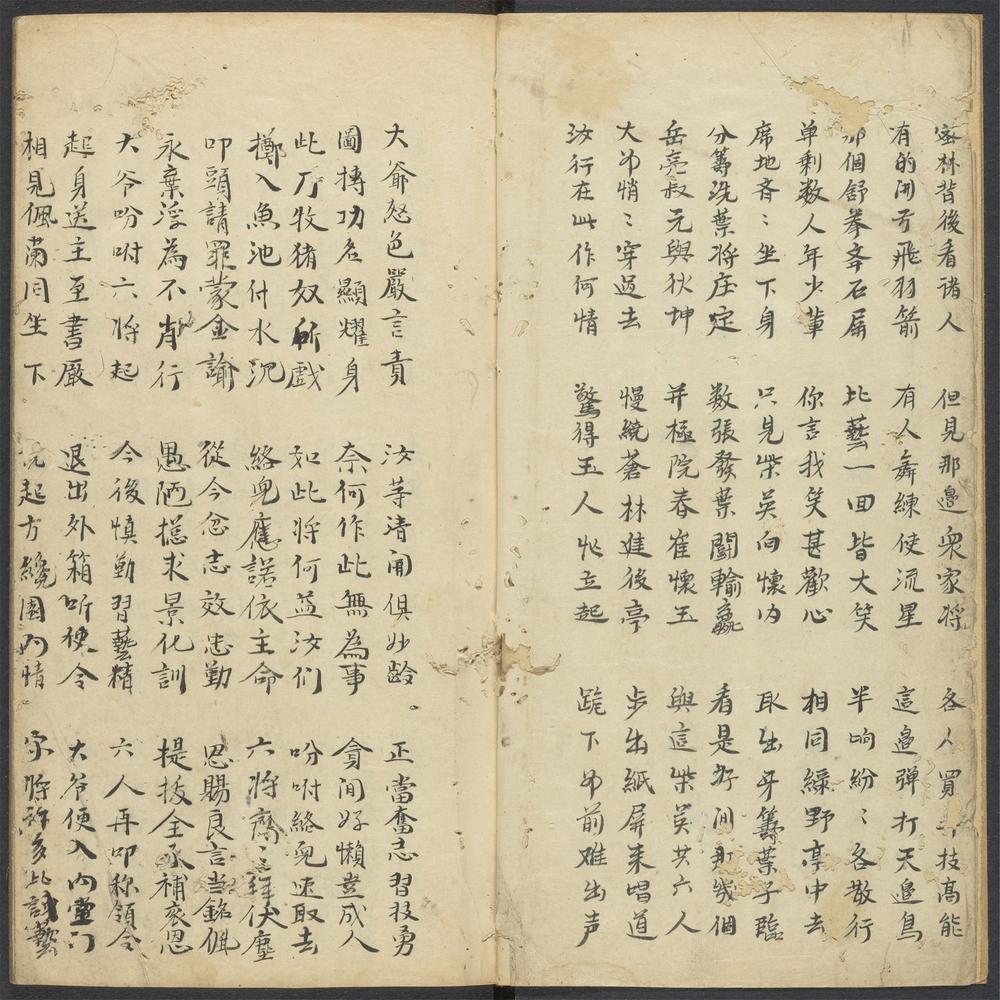 密林背後看諸人 但見那邊衆家将 各人買 技高能
有的開弓飛羽箭 有人舞練使流星 這邉弹打天邉鳥
那個舒拳奔石屏 比藝一回皆大笑 半晌紛〻各散行
单剩数人年少輩 你言我笑甚歡心 相同緑野亭中去
席地斉〻坐下身 只見柴英向懷内 取出牙籌葉子臨
分籌洗葉将庄定 数張發葉鬭輸嬴 看是好间那幾個
岳亮叔元與狄坤 并極院春崔懷玉 與這柴英共六人
大爷悄〻穿过去 慢繞蒼林進後亭 步出紙屏来唱道
汝行在此作何情 驚得玉人忙立起 跪下爷前难出声
大爺怒色嚴言責 汝等清闹俱妙龄。 正當奮志習技勇
圖摶功名顯耀身 奈何作此無為事 貪闲好懶豈成人
此乃牧猪奴所戲 如此将何益汝们 吩咐絡兜速取去
擲入魚池付水沉 絡兜應諾依主命 六将齊〻拜伏塵
叩頭請罪蒙金諭 從今忿志效忠勤 恩賜良言当銘佩
永棄浮為不肖行 愚陋搃求景化訓 提拔全承補衮恩
大爷吩咐六将起 今後慎勤習藝精 六人再叩称領令
起身送主至書廳 退出外箱听使令 大爷便入内堂门
相見佩蘭同坐下 説起方纔園内情 家将許多比試藝